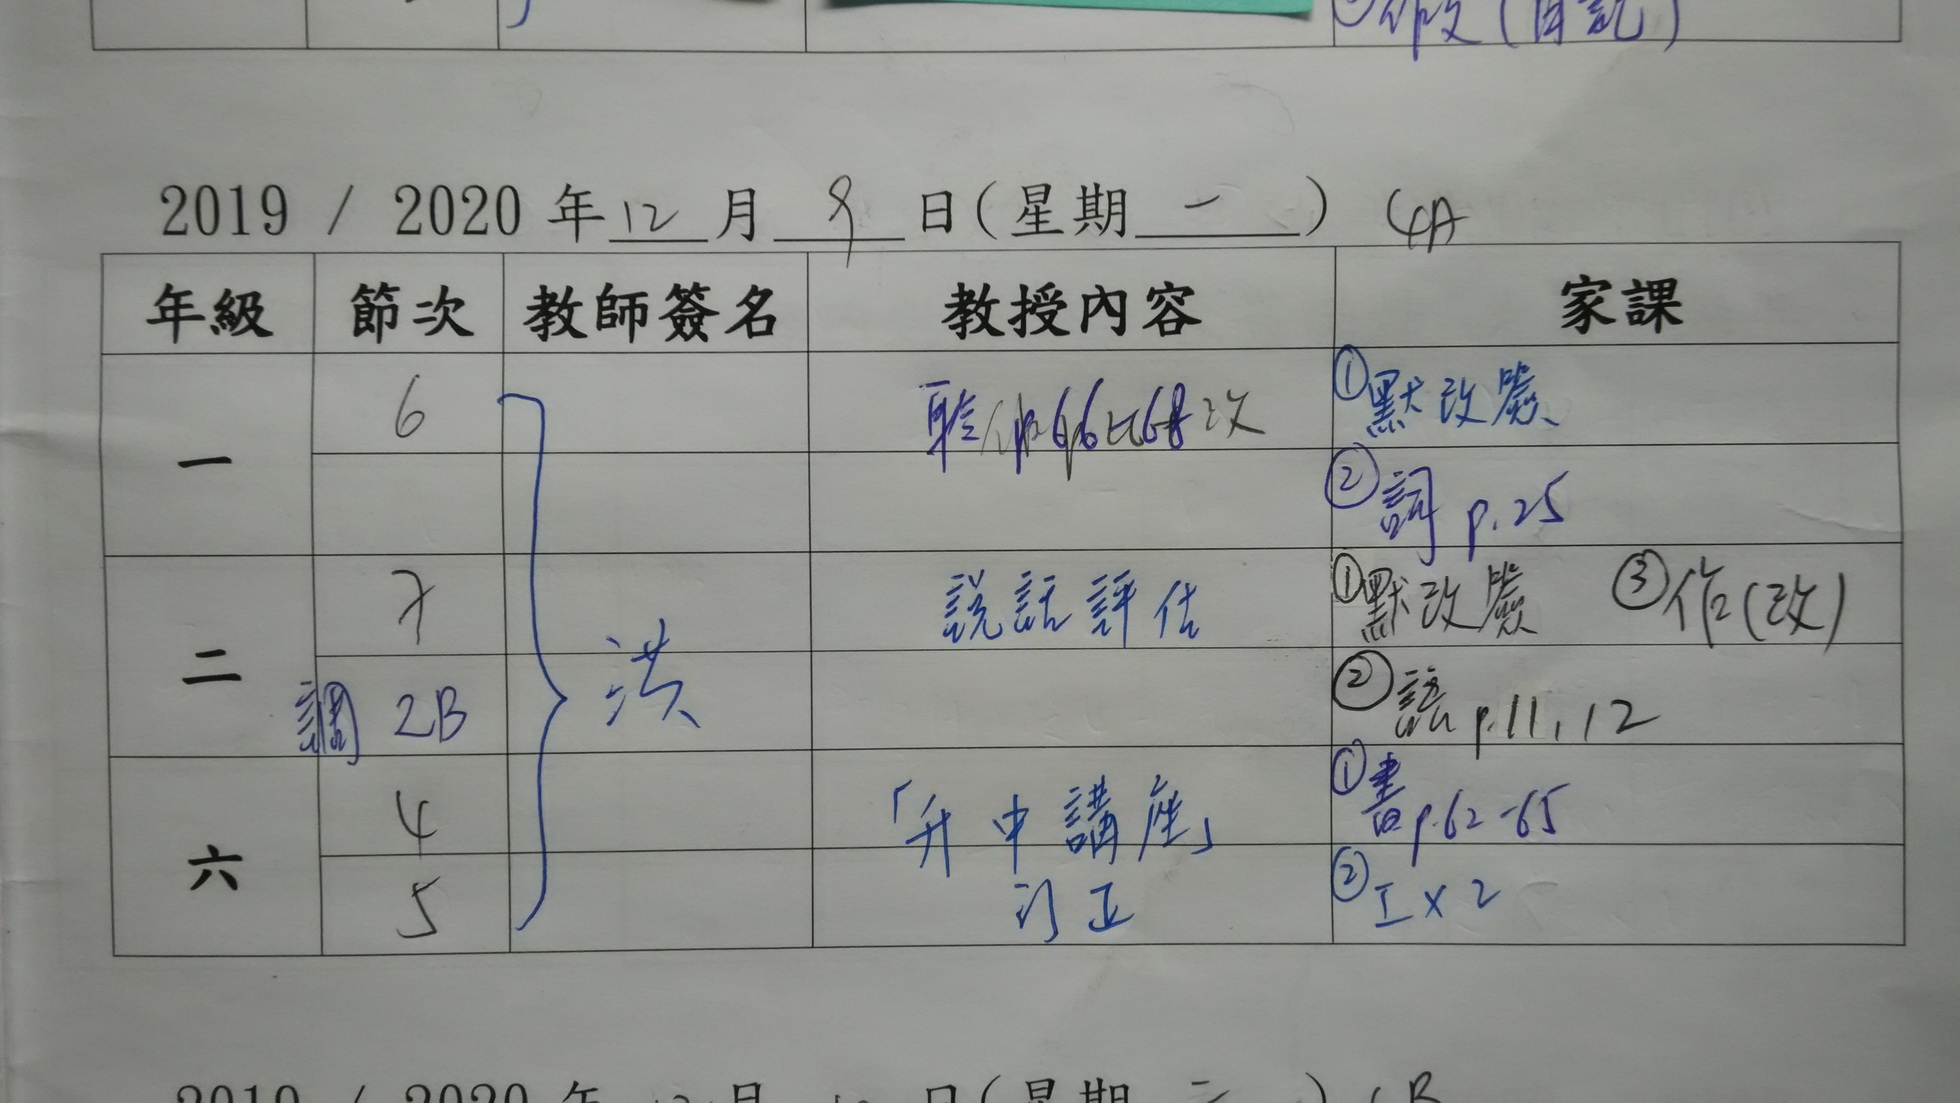 作文(日記)
2019 / 2020 年 12 月 9 日(星期 一 ) 4A
年級 節次 教師簽名 教授內容 家課
一 6 ①默改簽
② 詞 p.25
二 7 說話評估 ①默改簽 ③作(改)
調 2B 洪 ② p.11,12
六 4 「升中講座」 ①書p.62-65
5 訂正 ②工x2
2019 / 2020 年 12 月 10 日(星期 二 )